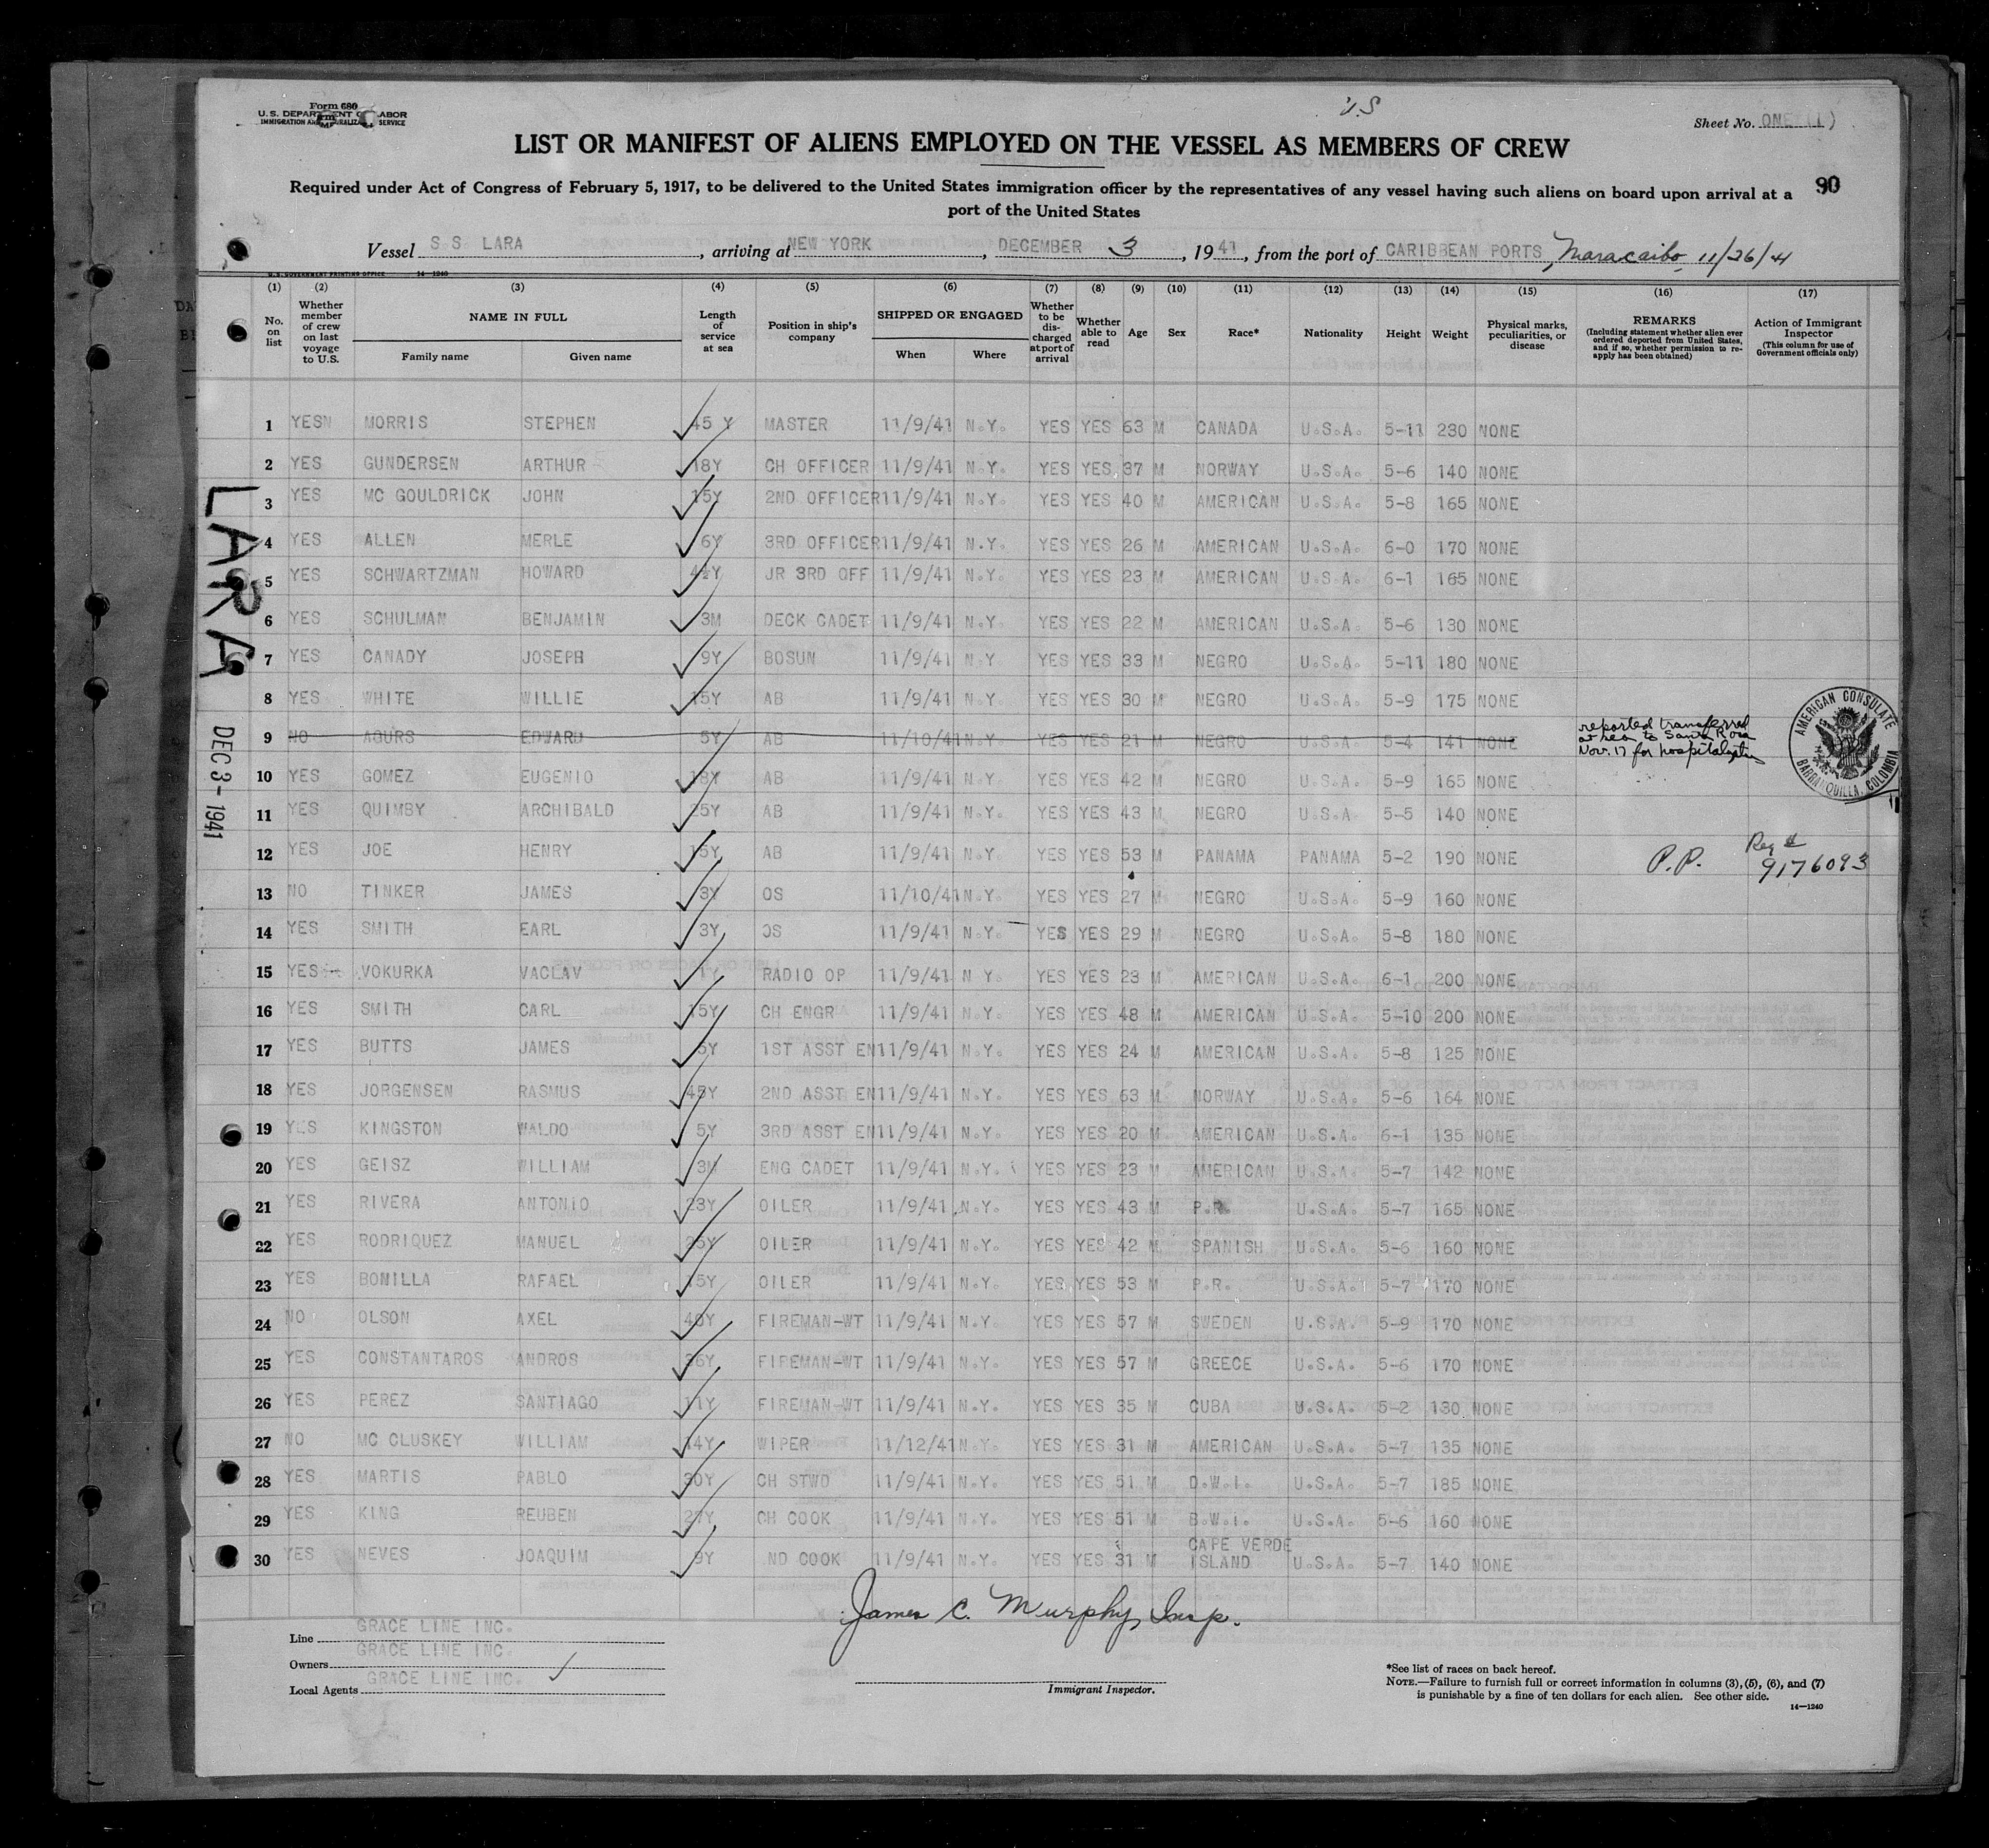 Form 680
U.S. DEPARTMENT OF LABOR
IMMIGRATION AND NATURALIZATION SERVICE
U.S
Sheet No. ONE (1)
LIST OR MANIFEST OF ALIENS EMPLOYED ON THE VESSEL AS MEMBERS OF CREW
Required under Act of Congress of February 5, 1917, to be delivered to the United States immigration officer by the representatives of any vessel having such aliens on board upon arrival at a
port of the United States
90
Vessel S S LARA, arriving at NEW YORK, DECEMBER 3, 1941, from the port of CARIBBEAN PORTS, Maracaibo 11/26/41
U.S. GOVERNMENT PRINTING OFFICE 14—1240
(1) (2) (3) (4) (5) (6) (7) (8) (9) (10) (11) (12) (13) (14) (15) (16) (17)
No. on list
Whether member of crew on last voyage to U.S.
NAME IN FULL
Family name
Given name
Length of service at sea
Position in ship's company
SHIPPED OR ENGAGED
When
Where
Whether to be discharged at port of arrival
Whether able to read
Age
Sex
Race*
Nationality
Height
Weight
Physical marks, peculiarities, or disease
REMARKS
(Including statement whether alien ever ordered deported from United States, and if so, whether permission to reapply has been obtained)
Action of Immigrant Inspector
(This column for use of Government officials only)
1 YES MORRIS STEPHEN 45 Y MASTER 11/9/41 N.Y. YES YES 63 M CANADA U.S.A. 5-11 230 NONE
2 YES GUNDERSEN ARTHUR 18Y CH OFFICER 11/9/41 N.Y. YES YES 37 M NORWAY U.S.A. 5-6 140 NONE
3 YES MC GOULDRICK JOHN 15Y 2ND OFFICER 11/9/41 N.Y. YES YES 40 M AMERICAN U.S.A. 5-8 165 NONE
4 YES ALLEN MERLE 6Y 3RD OFFICER 11/9/41 N.Y. YES YES 26 M AMERICAN U.S.A. 6-0 170 NONE
5 YES SCHWARTZMAN HOWARD 4½Y JR 3RD OFF 11/9/41 N.Y. YES YES 23 M AMERICAN U.S.A. 6-1 165 NONE
6 YES SCHULMAN BENJAMIN 3M DECK CADET 11/9/41 N.Y. YES YES 22 M AMERICAN U.S.A. 5-6 130 NONE
7 YES CANADY JOSEPH 9Y BOSUN 11/9/41 N.Y YES YES 33 M NEGRO U.S.A. 5-11 180 NONE
8 YES WHITE WILLIE 15Y AB 11/9/41 N.Y. YES YES 30 M NEGRO U.S.A. 5-9 175 NONE
9 NO AGURS EDWARD 5Y AB 11/10/41 N.Y YES YES 21 M NEGRO U.S.A 5-4 141 NONE reported transferred at sea to Santa Rosa Nov. 17 for hospitalization
AMERICAN CONSULATE BARRANQUILLA, COLOMBIA
10 YES GOMEZ EUGENIO 18Y AB 11/9/41 N.Y. YES YES 42 M NEGRO U.S.A. 5-9 165 NONE
11 YES QUIMBY ARCHIBALD 25Y AB 11/9/41 N.Y. YES YES 43 M NEGRO U.S.A 5-5 140 NONE
12 YES JOE HENRY 15Y AB 11/9/41 N.Y. YES YES 53 M PANAMA PANAMA 5-2 190 NONE P.P. Reg # 9176093
13 NO TINKER JAMES 3Y OS 11/10/41 N.Y. YES YES 27 M NEGRO U.S.A. 5-9 160 NONE
14 YES SMITH EARL 3Y OS 11/9/41 N.Y. YES YES 29 M NEGRO U.S.A. 5-8 180 NONE
15 YES VOKURKA VACLAV RADIO OP 11/9/41 N Y. YES YES 23 M AMERICAN U.S.A. 6-1 200 NONE
16 YES SMITH CARL 15Y CH ENGR 11/9/41 N.Y. YES YES 48 M AMERICAN U.S.A. 5-10 200 NONE
17 YES BUTTS JAMES 5Y 1ST ASST EN 11/9/41 N.Y. YES YES 24 M AMERICAN U.S.A. 5-8 125 NONE
18 YES JORGENSEN RASMUS 45Y 2ND ASST EN 11/9/41 N.Y. YES YES 63 M NORWAY U.S.A. 5-6 164 NONE
19 YES KINGSTON WALDO 5Y 3RD ASST EN 11/9/41 N.Y. YES YES 20 M AMERICAN U.S.A. 6-1 135 NONE
20 YES GEISZ WILLIAM 3M ENG CADET 11/9/41 N.Y. YES YES 23 M AMERICAN U.S.A. 5-7 142 NONE
21 YES RIVERA ANTONIO 23Y OILER 11/9/41 N.Y. YES YES 43 M P.R. U.S.A. 5-7 165 NONE
22 YES RODRIQUEZ MANUEL 25Y OILER 11/9/41 N.Y. YES YES 42 M SPANISH U.S.A. 5-6 160 NONE
23 YES BONILLA RAFAEL 15Y OILER 11/9/41 N.Y. YES YES 53 M P.R. U.S.A. 5-7 170 NONE
24 NO OLSON AXEL 40Y FIREMAN-WT 11/9/41 N.Y. YES YES 57 M SWEDEN U.S.A. 5-9 170 NONE
25 YES CONSTANTAROS ANDROS 36Y FIREMAN-WT 11/9/41 N.Y. YES YES 57 M GREECE U.S.A. 5-6 170 NONE
26 YES PEREZ SANTIAGO 11Y FIREMAN-WT 11/9/41 N.Y. YES YES 35 M CUBA U.S.A. 5-2 130 NONE
27 NO MC CLUSKEY WILLIAM 14Y WIPER 11/12/41 N.Y. YES YES 31 M AMERICAN U.S.A. 5-7 135 NONE
28 YES MARTIS PABLO 30Y CH STWD 11/9/41 N.Y. YES YES 51 M D.W.I. U.S.A. 5-7 185 NONE
29 YES KING REUBEN 27Y CH COOK 11/9/41 N.Y. YES YES 51 M B.W.I. U.S.A. 5-6 160 NONE
30 YES NEVES JOAQUIM 9Y ND COOK 11/9/41 N.Y. YES YES 31 M CAPE VERDE ISLAND U.S.A. 5-7 140 NONE
LARA
DEC 3-1941
James C. Murphy, Insp.
Line GRACE LINE INC.
Owners GRACE LINE INC.
Local Agents GRACE LINE INC.
Immigrant Inspector.
*See list of races on back hereof.
NOTE.—Failure to furnish full or correct information in columns (3), (5), (6), and (7)
is punishable by a fine of ten dollars for each alien. See other side.
14—1240